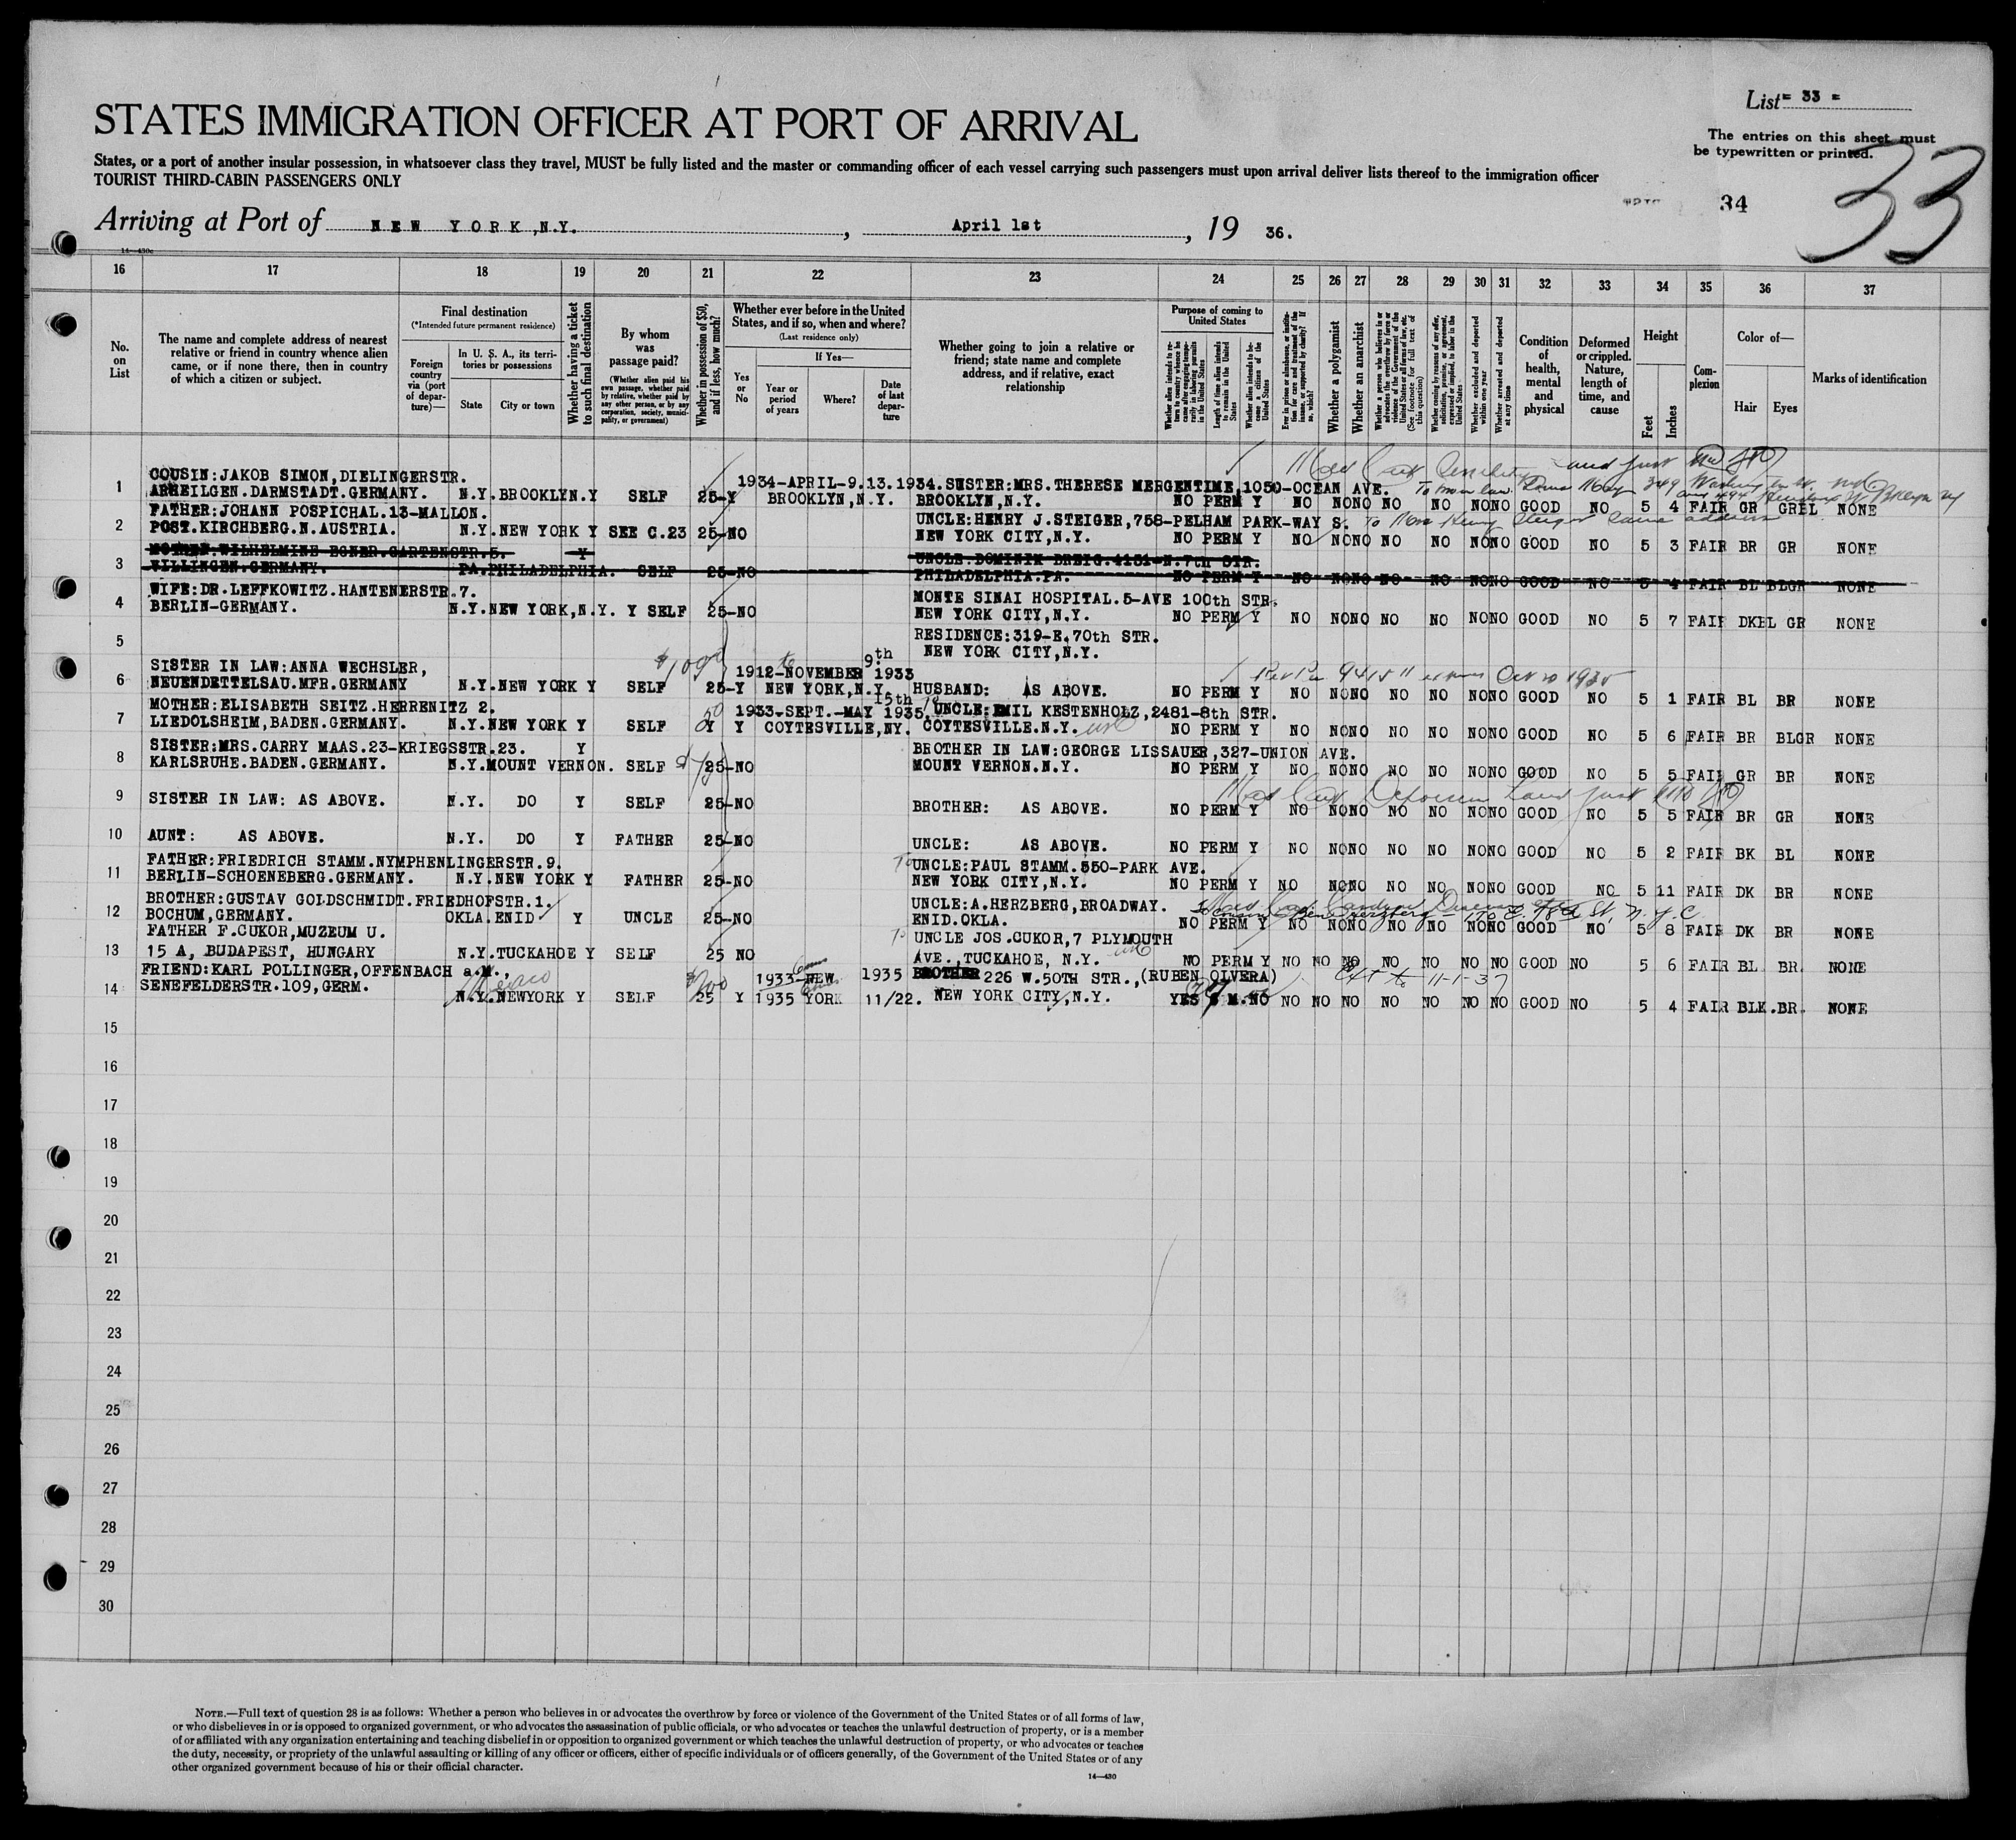 List = 33 =
STATES IMMIGRATION OFFICER AT PORT OF ARRIVAL
The entries on this sheet must
be typewritten or printed.
States, or a port of another insular possession, in whatsoever class they travel, MUST be fully listed and the master or commanding officer of each vessel carrying such passengers must upon arrival deliver lists thereof to the immigration officer
TOURIST THIRD-CABIN PASSENGERS ONLY
34
33
Arriving at Port of NEW YORK, N.Y. , April 1st , 19 36.
16 17 18 19 20 21 22 23 24 25 26 27 28 29 30 31 32 33 34 35 36 37
No. on List
The name and complete address of nearest relative or friend in country whence alien came, or if none there, then in country of which a citizen or subject.
Final destination
(*Intended future permanent residence)
Foreign country via (port of departure)—
In U. S. A., its territories or possessions
State
City or town
Whether having a ticket to such final destination
By whom was passage paid?
(Whether alien paid his own passage, whether paid by relative, whether paid by any other person, or by any corporation, society, municipality, or government)
Whether in possession of $50, and if less, how much?
Whether ever before in the United States, and if so, when and where?
(Last residence only)
Yes or No
If Yes—
Year or period of years
Where?
Date of last departure
Whether going to join a relative or friend; state name and complete address, and if relative, exact relationship
Purpose of coming to United States
Length of time alien intends to remain in the United States
Whether alien intends to become a citizen of the United States
Whether a polygamist
Whether an anarchist
Whether excluded and deported within one year
Whether arrested and deported at any time
Condition of health, mental and physical
Deformed or crippled. Nature, length of time, and cause
Height
Feet
Inches
Complexion
Color of—
Hair
Eyes
Marks of identification
1 COUSIN:JAKOB SIMON,DIELINGERSTR.
ARHEILGEN.DARMSTADT.GERMANY. N.Y.BROOKLYN.Y SELF 25-Y 1934-APRIL-9.13.1934. BROOKLYN,N.Y. SISTER:MRS.THERESE MERGENTIME,1050-OCEAN AVE.
BROOKLYN,N.Y. NO PERM Y NO NONO NO NO NONO GOOD NO 5 4 FAIR GR GRBL NONE
2 FATHER:JOHANN POSPICHAL.13-MALLON.
POST.KIRCHBERG.N.AUSTRIA. N.Y.NEW YORK Y SEE C.23 25-NO UNCLE:HENRY J.STEIGER,758-PELHAM PARK-WAY S.
NEW YORK CITY,N.Y. NO PERM Y NO NONO NO NO NONO GOOD NO 5 3 FAIR BR GR NONE
3 MOTHER:WILHELMINE EGNER.GARTENSTR.5. Y
VILLINGEN.GERMANY. PA.PHILADELPHIA. SELF 25-NO UNCLE:DOMINIK DREIG.4151-N.7th STR.
PHILADELPHIA.PA. NO PERM Y NO NONO NO NO NONO GOOD NO 5 4 FAIR BL BLGR NONE
4 WIFE:DR.LEFFKOWITZ.HANTENERSTR.7.
BERLIN-GERMANY. N.Y.NEW YORK,N.Y. Y SELF 25-NO MONTE SINAI HOSPITAL.5-AVE 100th STR.
NEW YORK CITY,N.Y. NO PERM Y NO NONO NO NO NONO GOOD NO 5 7 FAIR DKBL GR NONE
5 RESIDENCE:319-E.70th STR.
NEW YORK CITY,N.Y.
6 SISTER IN LAW:ANNA WECHSLER,
NEUENDETTELSAU.MFR.GERMANY N.Y.NEW YORK Y SELF 25-Y 1912 to NOVEMBER 9th 1933 NEW YORK,N.Y. HUSBAND: AS ABOVE. NO PERM Y NO NONO NO NO NONO GOOD NO 5 1 FAIR BL BR NONE
7 MOTHER:ELISABETH SEITZ.HERRENITZ 2.
LIEDOLSHEIM,BADEN.GERMANY. N.Y.NEW YORK Y SELF Y Y 1933-SEPT.-MAY 15th 1935. COYTESVILLE,NY. UNCLE:EMIL KESTENHOLZ,2481-8th STR.
COYTESVILLE.N.Y. NO PERM Y NO NONO NO NO NONO GOOD NO 5 6 FAIR BR BLGR NONE
8 SISTER:MRS.CARRY MAAS.23-KRIEGSSTR.23. Y
KARLSRUHE.BADEN.GERMANY. N.Y.MOUNT VERNON. SELF 25-NO BROTHER IN LAW:GEORGE LISSAUER,327-UNION AVE.
MOUNT VERNON.N.Y. NO PERM Y NO NONO NO NO NONO GOOD NO 5 5 FAIR GR BR NONE
9 SISTER IN LAW: AS ABOVE. N.Y. DO Y SELF 25-NO BROTHER: AS ABOVE. NO PERM Y NO NONO NO NO NONO GOOD NO 5 5 FAIR BR GR NONE
10 AUNT: AS ABOVE. N.Y. DO Y FATHER 25-NO UNCLE: AS ABOVE. NO PERM Y NO NONO NO NO NONO GOOD NO 5 2 FAIR BK BL NONE
11 FATHER:FRIEDRICH STAMM.NYMPHENLINGERSTR.9.
BERLIN-SCHOENEBERG.GERMANY. N.Y.NEW YORK Y FATHER 25-NO UNCLE:PAUL STAMM.550-PARK AVE.
NEW YORK CITY,N.Y. NO PERM Y NO NONO NO NO NONO GOOD NO 5 11 FAIR DK BR NONE
12 BROTHER:GUSTAV GOLDSCHMIDT.FRIEDHOFSTR.1.
BOCHUM,GERMANY. OKLA.ENID Y UNCLE 25-NO UNCLE:A.HERZBERG,BROADWAY.
ENID.OKLA. NO PERM Y NO NONO NO NO NONO GOOD NO 5 8 FAIR DK BR NONE
13 FATHER F.CUKOR,MUZEUM U.
15 A, BUDAPEST, HUNGARY N.Y.TUCKAHOE Y SELF 25 NO UNCLE JOS.CUKOR,7 PLYMOUTH
AVE.,TUCKAHOE, N.Y. NO PERM Y NO NO NO NO NO NO NO GOOD NO 5 6 FAIR BL BR. NONE
14 FRIEND:KARL POLLINGER,OFFENBACH a.M.,
SENEFELDERSTR.109,GERM. N.Y.NEWYORK Y SELF 25 Y 1933-1935 NEW YORK 1935 11/22. BROTHER 226 W.50TH STR.,(RUBEN OLVERA)
NEW YORK CITY,N.Y. YES 6 M.NO NO NO NO NO NO NO NO GOOD NO 5 4 FAIR BLK.BR. NONE
15
16
17
18
19
20
21
22
23
24
25
26
27
28
29
30
NOTE.—Full text of question 28 is as follows: Whether a person who believes in or advocates the overthrow by force or violence of the Government of the United States or of all forms of law,
or who disbelieves in or is opposed to organized government, or who advocates the assassination of public officials, or who advocates or teaches the unlawful destruction of property, or is a member
of or affiliated with any organization entertaining and teaching disbelief in or opposition to organized government or which teaches the unlawful destruction of property, or who advocates or teaches
the duty, necessity, or propriety of the unlawful assaulting or killing of any officer or officers, either of specific individuals or of officers generally, of the Government of the United States or of any
other organized government because of his or their official character.
14—430